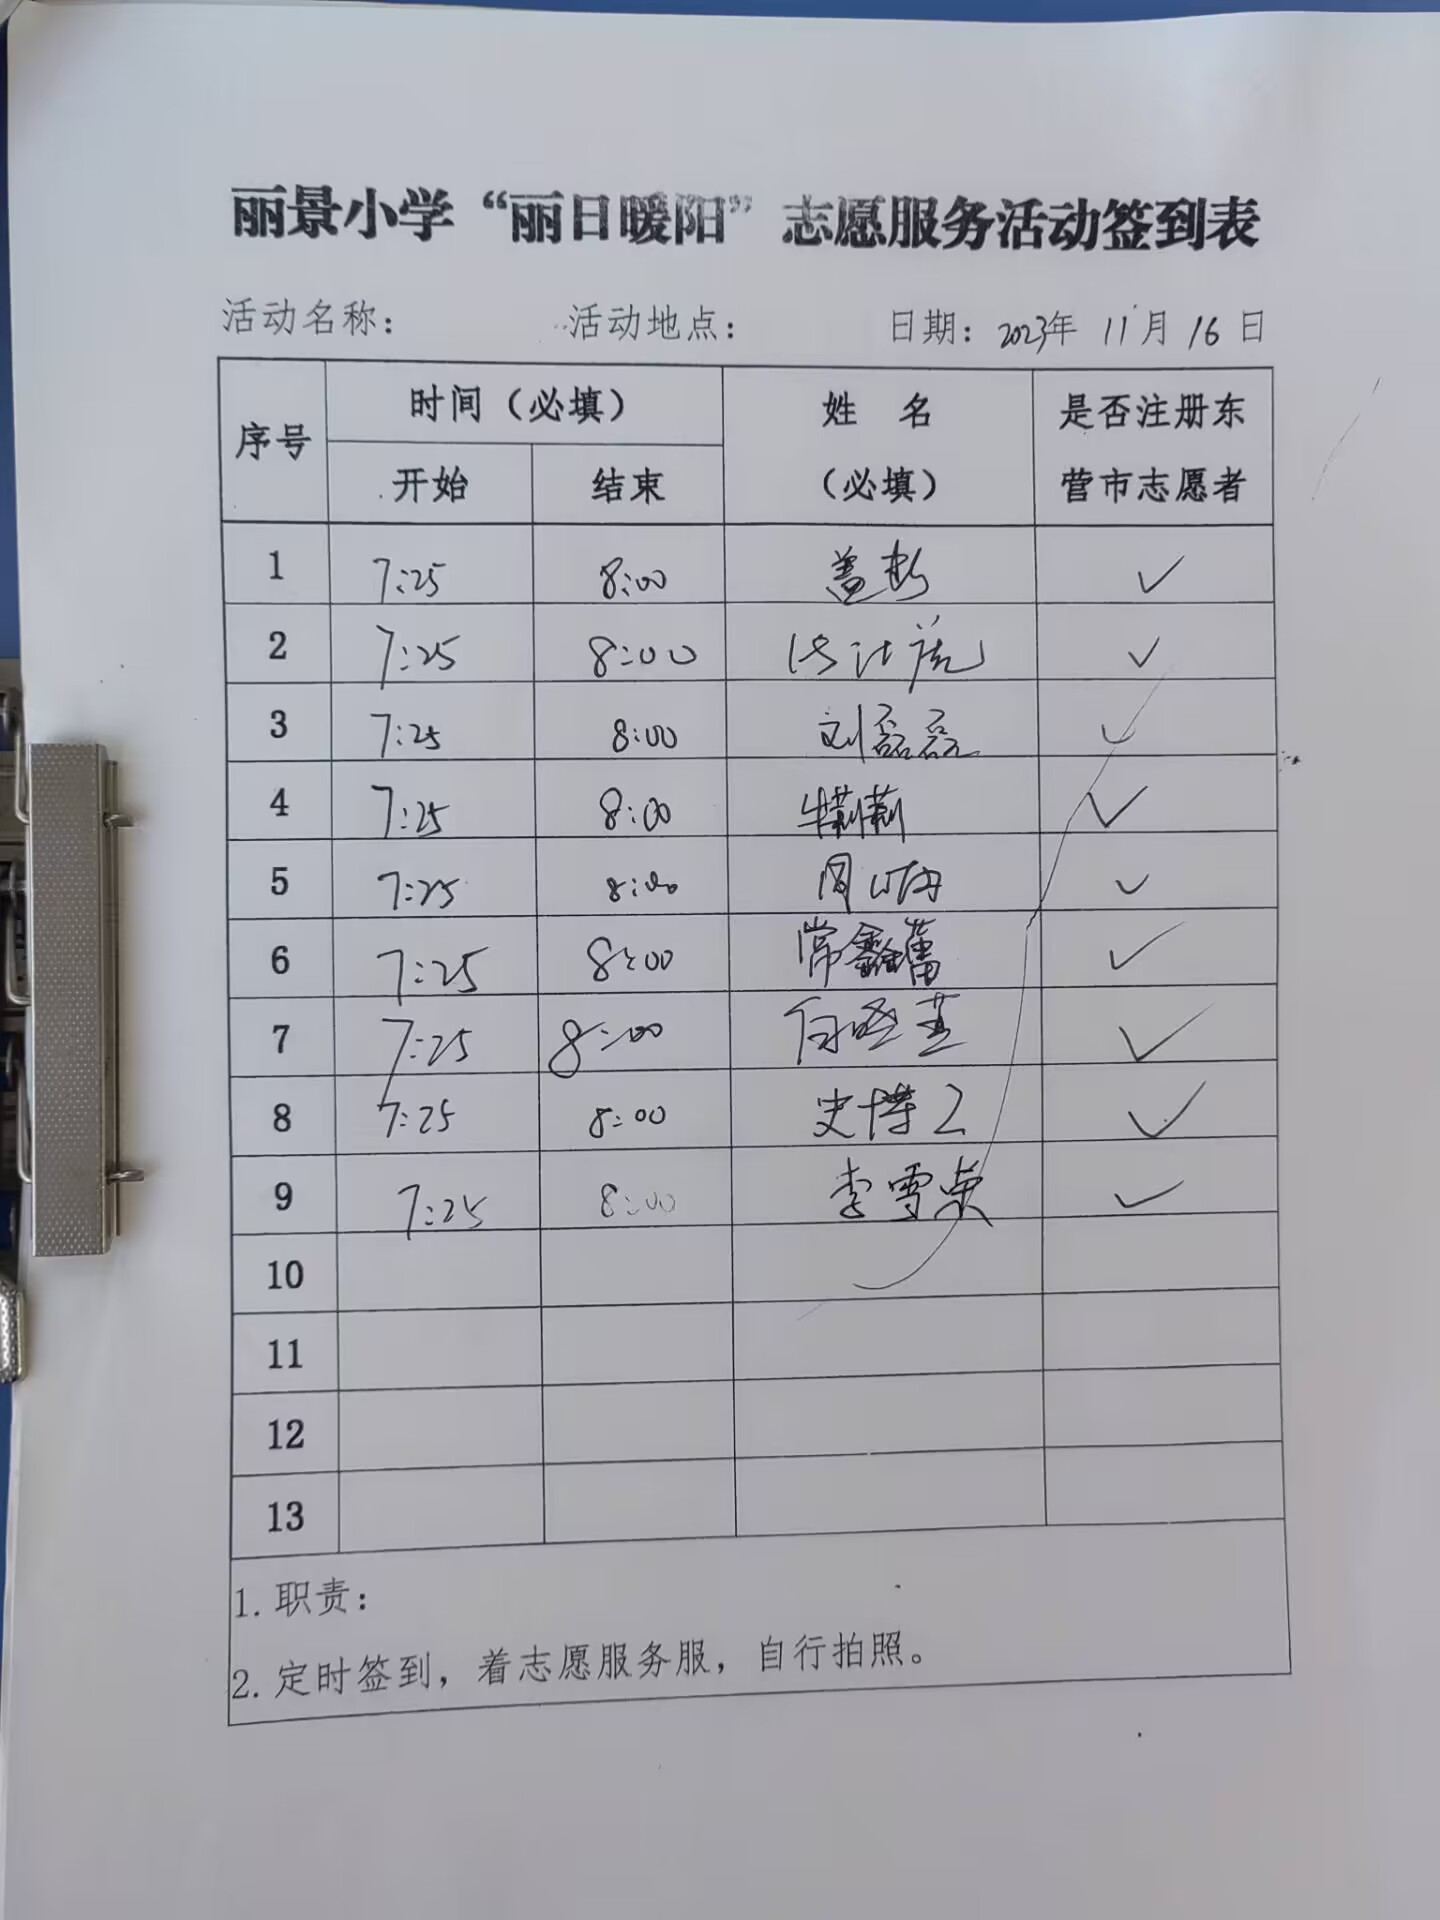 丽景小学“丽日暖阳”志愿服务活动签到表
活动名称： 活动地点： 日期：2023年 11月 16日
序号 时间（必填） 姓 名（必填） 是否注册东营市志愿者
开始 结束
1 7:25 8:00 盖彬 ✓
2 7:25 8:00 ✓
3 7:25 8:00 刘磊磊 ✓
4 7:25 8:00 牛莉莉 ✓
5 7:25 8:00 周 ✓
6 7:25 8:00 常鑫蕾 ✓
7 7:25 8:00 ✓
8 7:25 8:00 史博 ✓
9 7:25 8:00 李雪荣 ✓
10
11
12
13
1. 职责：
2. 定时签到，着志愿服务服，自行拍照。